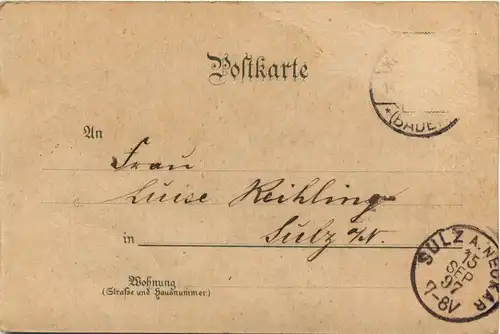 Postkarte
(BADEN)
An
Frau
Luise Reihling
in Sulz a/N.
SULZ A. NECKAR
15 SEP 97
7-8V
Wohnung
(Straße und Hausnummer.)